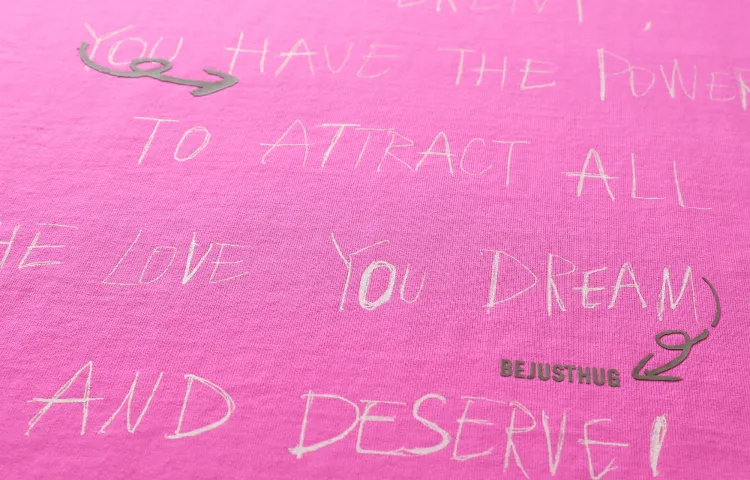 YOU HAVE THE POWER
TO ATTRACT ALL
HE LOVE YOU DREAM
BEJUSTHUG
AND DESERVE!